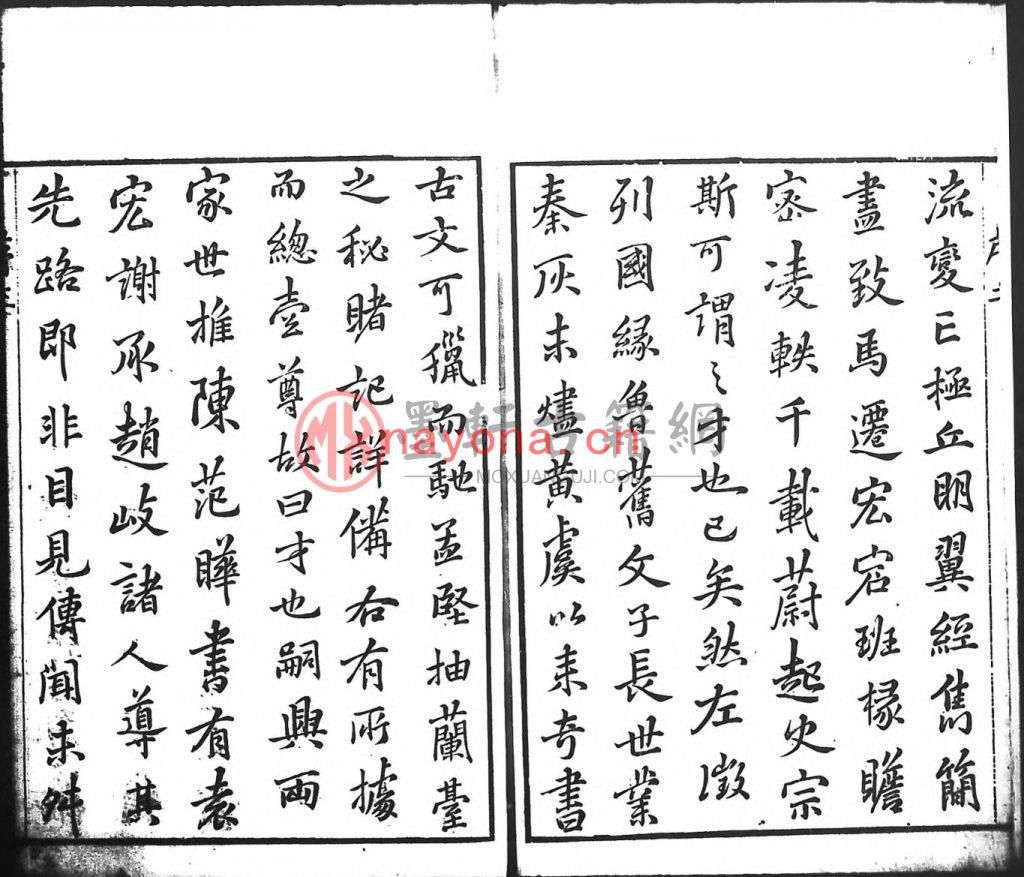 流變已極丘明翼經雋簡
盡致馬遷宏宕班椽贍
密凌軼千載蔚起史宗
斯可謂之才也已矣然左徵
列國緣魯舊文子長世業
秦灰未燼黃虞以來奇書
古文可獵而馳孟堅抽蘭臺
之秘賭記詳備右有所據
而總壹尊故曰才也嗣興兩
家世推陳范曄書有袁
宏謝承趙岐諸人導其
先路即非目見傳聞未舛
墨軒書籍網
nayona.cn
MOXUANSHUJI.COM